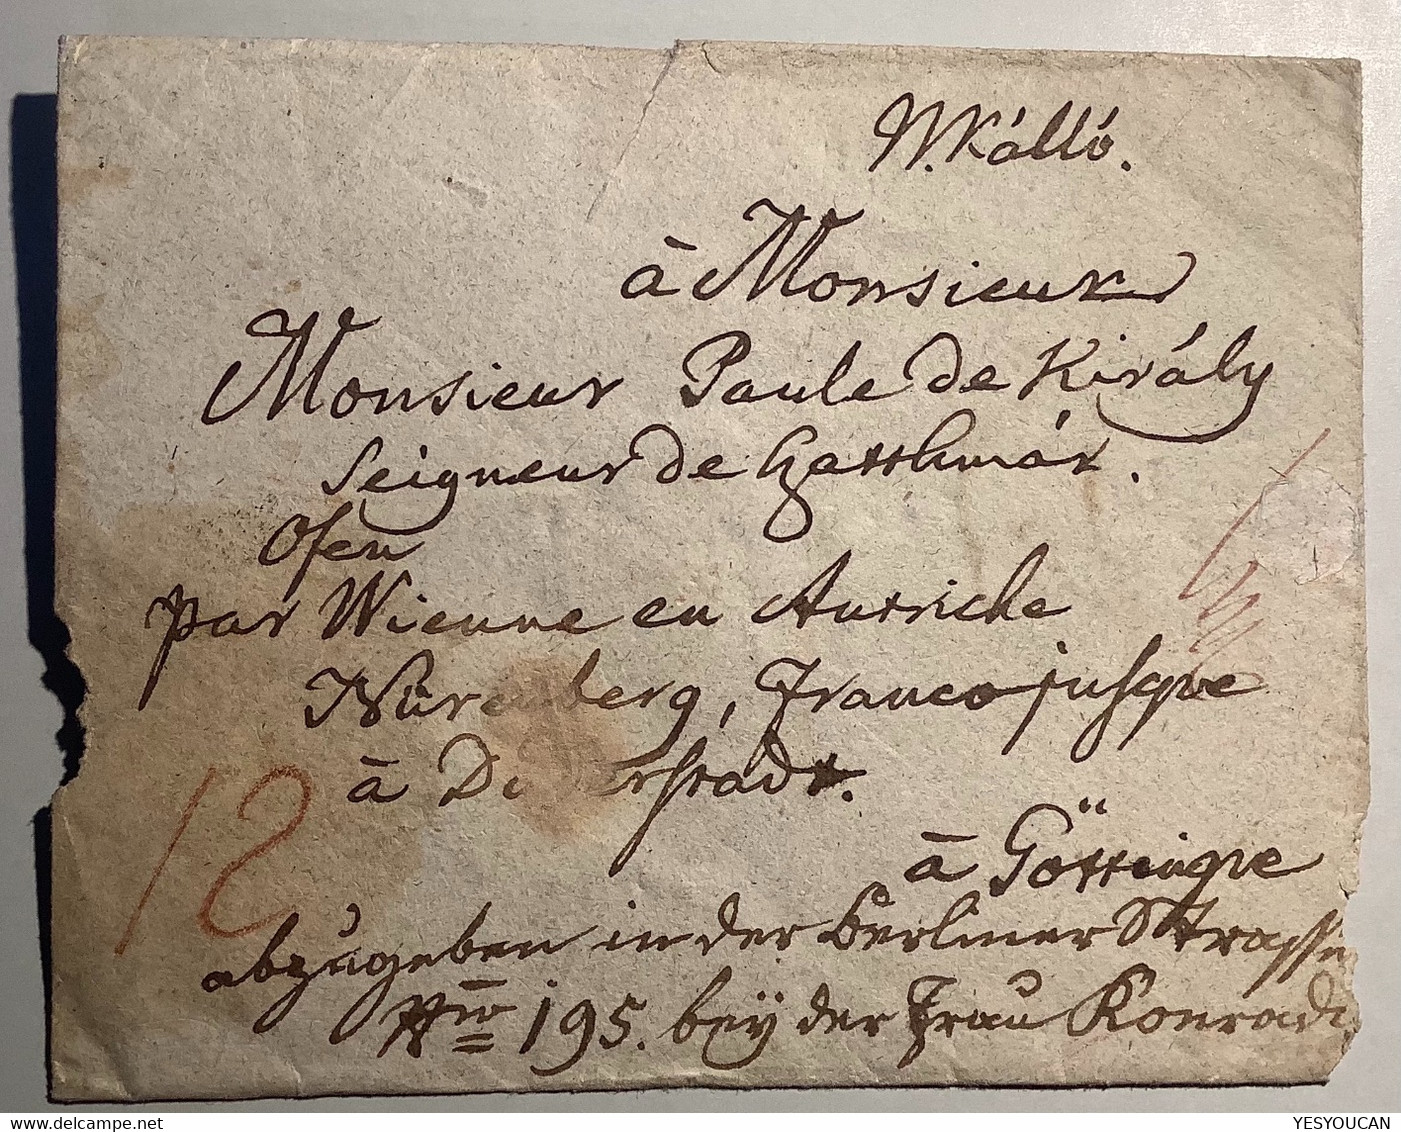 N. Kálló.
à Monsieur
Monsieur Paule de Király
Seigneur de
Ofen
par Wienne en Autriche
Nürenberg, Franco jusque
à
à Göttingue
abzugeben in der Berliner Strasse
Nro 195. beÿ der Frau Konradi
12
www.delcampe.net
YESYOUCAN